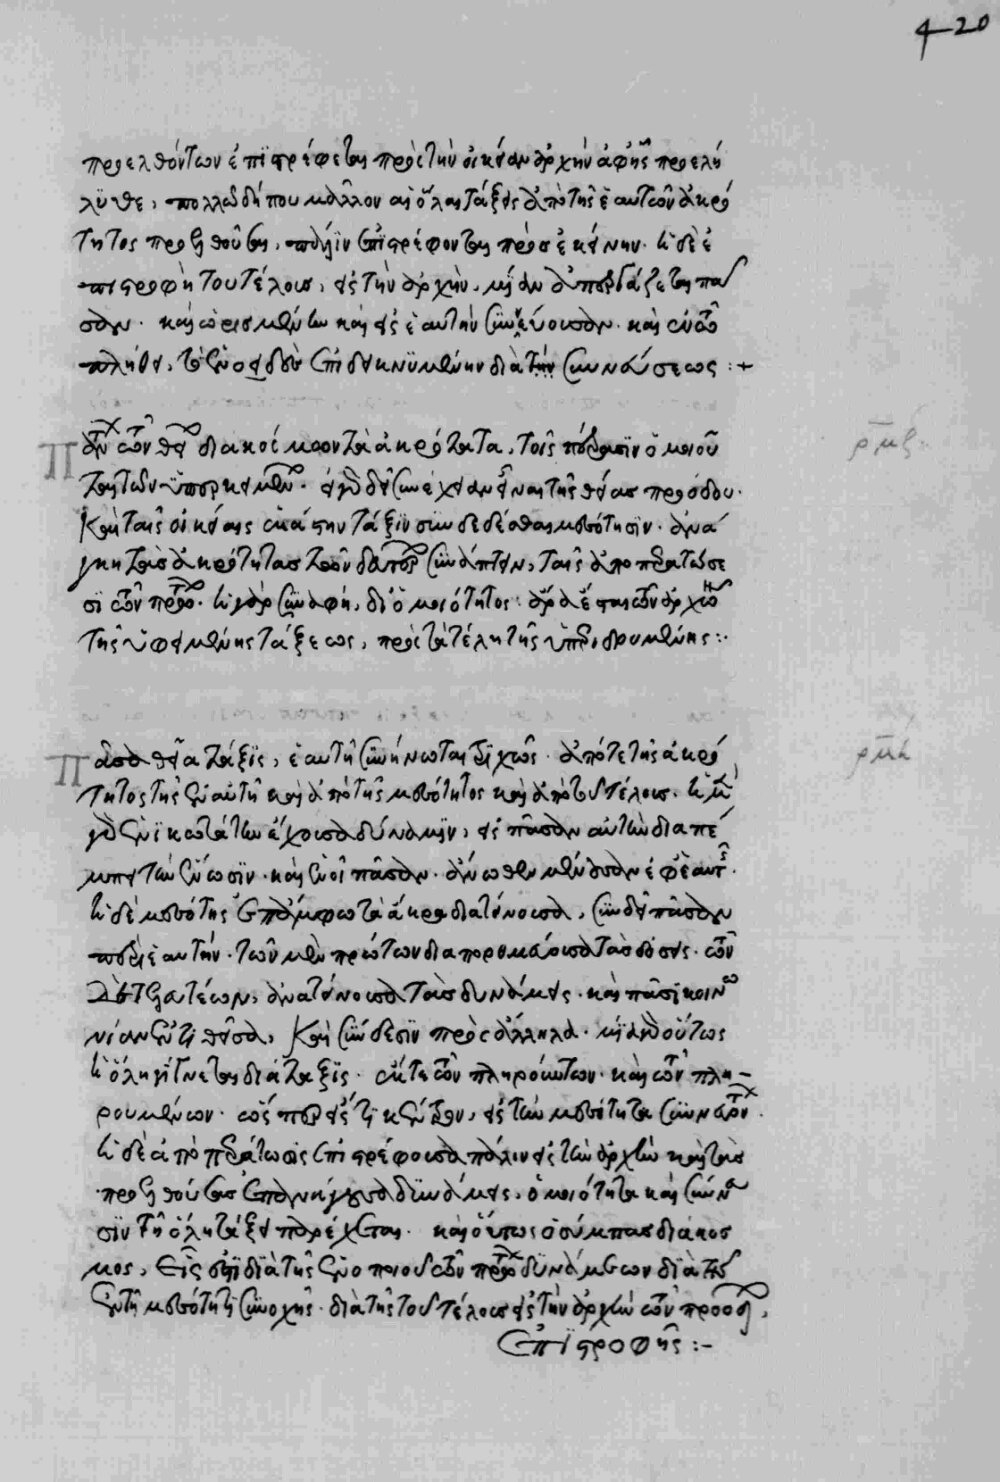 προελθόντων ἐπιστρέφεται πρὸς τὴν οἰκείαν ἀρχὴν ἀφῆς προελή
λυθε, πολλῶ δήπου μᾶλλον αἱ ὅλαι τάξεις ἀπὸ τῆς ἑαυτῶν ἀκρό
τητος προελθοῦσαι, πάλιν ἐπιστρέφονται πρὸς ἐκείνην. ἡ δὲ ἐ
πιστροφὴ τοῦ τέλους, εἰς τὴν ἀρχὴν, μίαν ἀπεργάζεται πᾶ
σαν. καὶ ὡρισμένην καὶ εἰς ἑαυτὴν συννεύουσαν. καὶ ἐν τῶ
πλήθει, τὸ ἑνοειδὲς ἐπιδεικνυμένην διὰ τῆς συννεύσεως :+
Πάντων τῶν θείων διακόσμων τὰ ἀκρότατα, τοῖς πέρασιν ὁμοιοῦ
ται τῶν ὑπερκειμένων. εἰ γὰρ δεῖ συνέχειαν εἶναι τῆς θείας προόδου.
καὶ ταῖς οἰκείαις ἑκάστην τάξιν συνδεδέσθαι μεσότησιν. ἀνά
γκη τὰς ἀκρότητας τῶν δευτέρων συνάπτειν, ταῖς ἀποπερατώσε
σι τῶν πρώτων. ἡ γὰρ συναφὴ, δι' ὁμοιότητος. ἄρα ἔσται τῶν ἀρχῶν
τῆς ὑφειμένης τάξεως, πρὸς τὰ τέλη τῆς ὑπεριδρυμένης :.
Πᾶσα θεία τάξις, ἑαυτῆ συνήνωται τριχῶς. ἀπό τε τῆς ἀκρό
τητος τῆς ἑαυτῆς καὶ ἀπὸ τῆς μεσότητος καὶ ἀπὸ τοῦ τέλους. ἡ μὲν
γὰρ ἑνικωτάτην ἔχουσα δύναμιν, εἰς πᾶσαν αὐτὴν διαπέ
μπει τὴν ἕνωσιν. καὶ ἑνοῖ πᾶσαν. ἄνωθεν μένουσαν ἐφ' ἑαυτῆς.
ἡ δὲ μεσότης ἐπ' ἄμφω τὰ ἄκρα διατείνουσα, συνδεῖ πᾶσαν
περὶ ἑαυτήν. τῶν μὲν πρώτων διαπορθμεύουσα τὰς δόσεις. τῶν
δὲ τελευταίων, ἀνατείνουσα τὰς δυνάμεις. καὶ πᾶσι κοινω
νίαν ἐντιθεῖσα, καὶ σύνδεσιν πρὸς ἄλληλα. μία γὰρ οὕτως
ἡ ὅλη γίνεται διάταξις. ἔκ τε τῶν πληρούντων. καὶ τῶν πλη-
ρουμένων. ὥσπερ εἴς τι κέντρον, εἰς τὴν μεσότητα συννευόντων.
ἡ δὲ ἀποπεράτωσις ἐπιστρέφουσα πάλιν εἰς τὴν ἀρχὴν καὶ τὰς
προελθούσας ἐπανάγουσα δυνάμεις, ὁμοιότητα καὶ σύννευ
σιν τῆ ὅλη τάξει παρέχεται. καὶ οὕτως ὁ σύμπας διάκοσ
μος, εἷς ἐστι διὰ τῆς ἑνοποιοῦ τῶν πρώτων δυνάμεως διὰ τῆς
ἐν τῆ μεσότητι συνοχῆς. διὰ τῆς τοῦ τέλους εἰς τὴν ἀρχὴν τῶν προόδων,
ἐπιστροφῆς :-